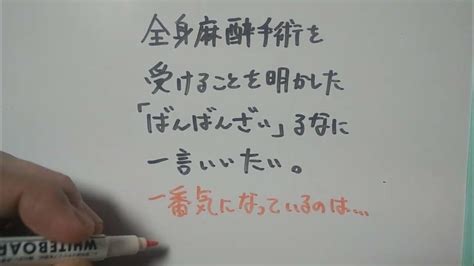 全身麻酔手術を
受けることを明かした
「ばんばんざい」るなに
一言いいたい。
一番気になっているのは…
WHITEBOAR